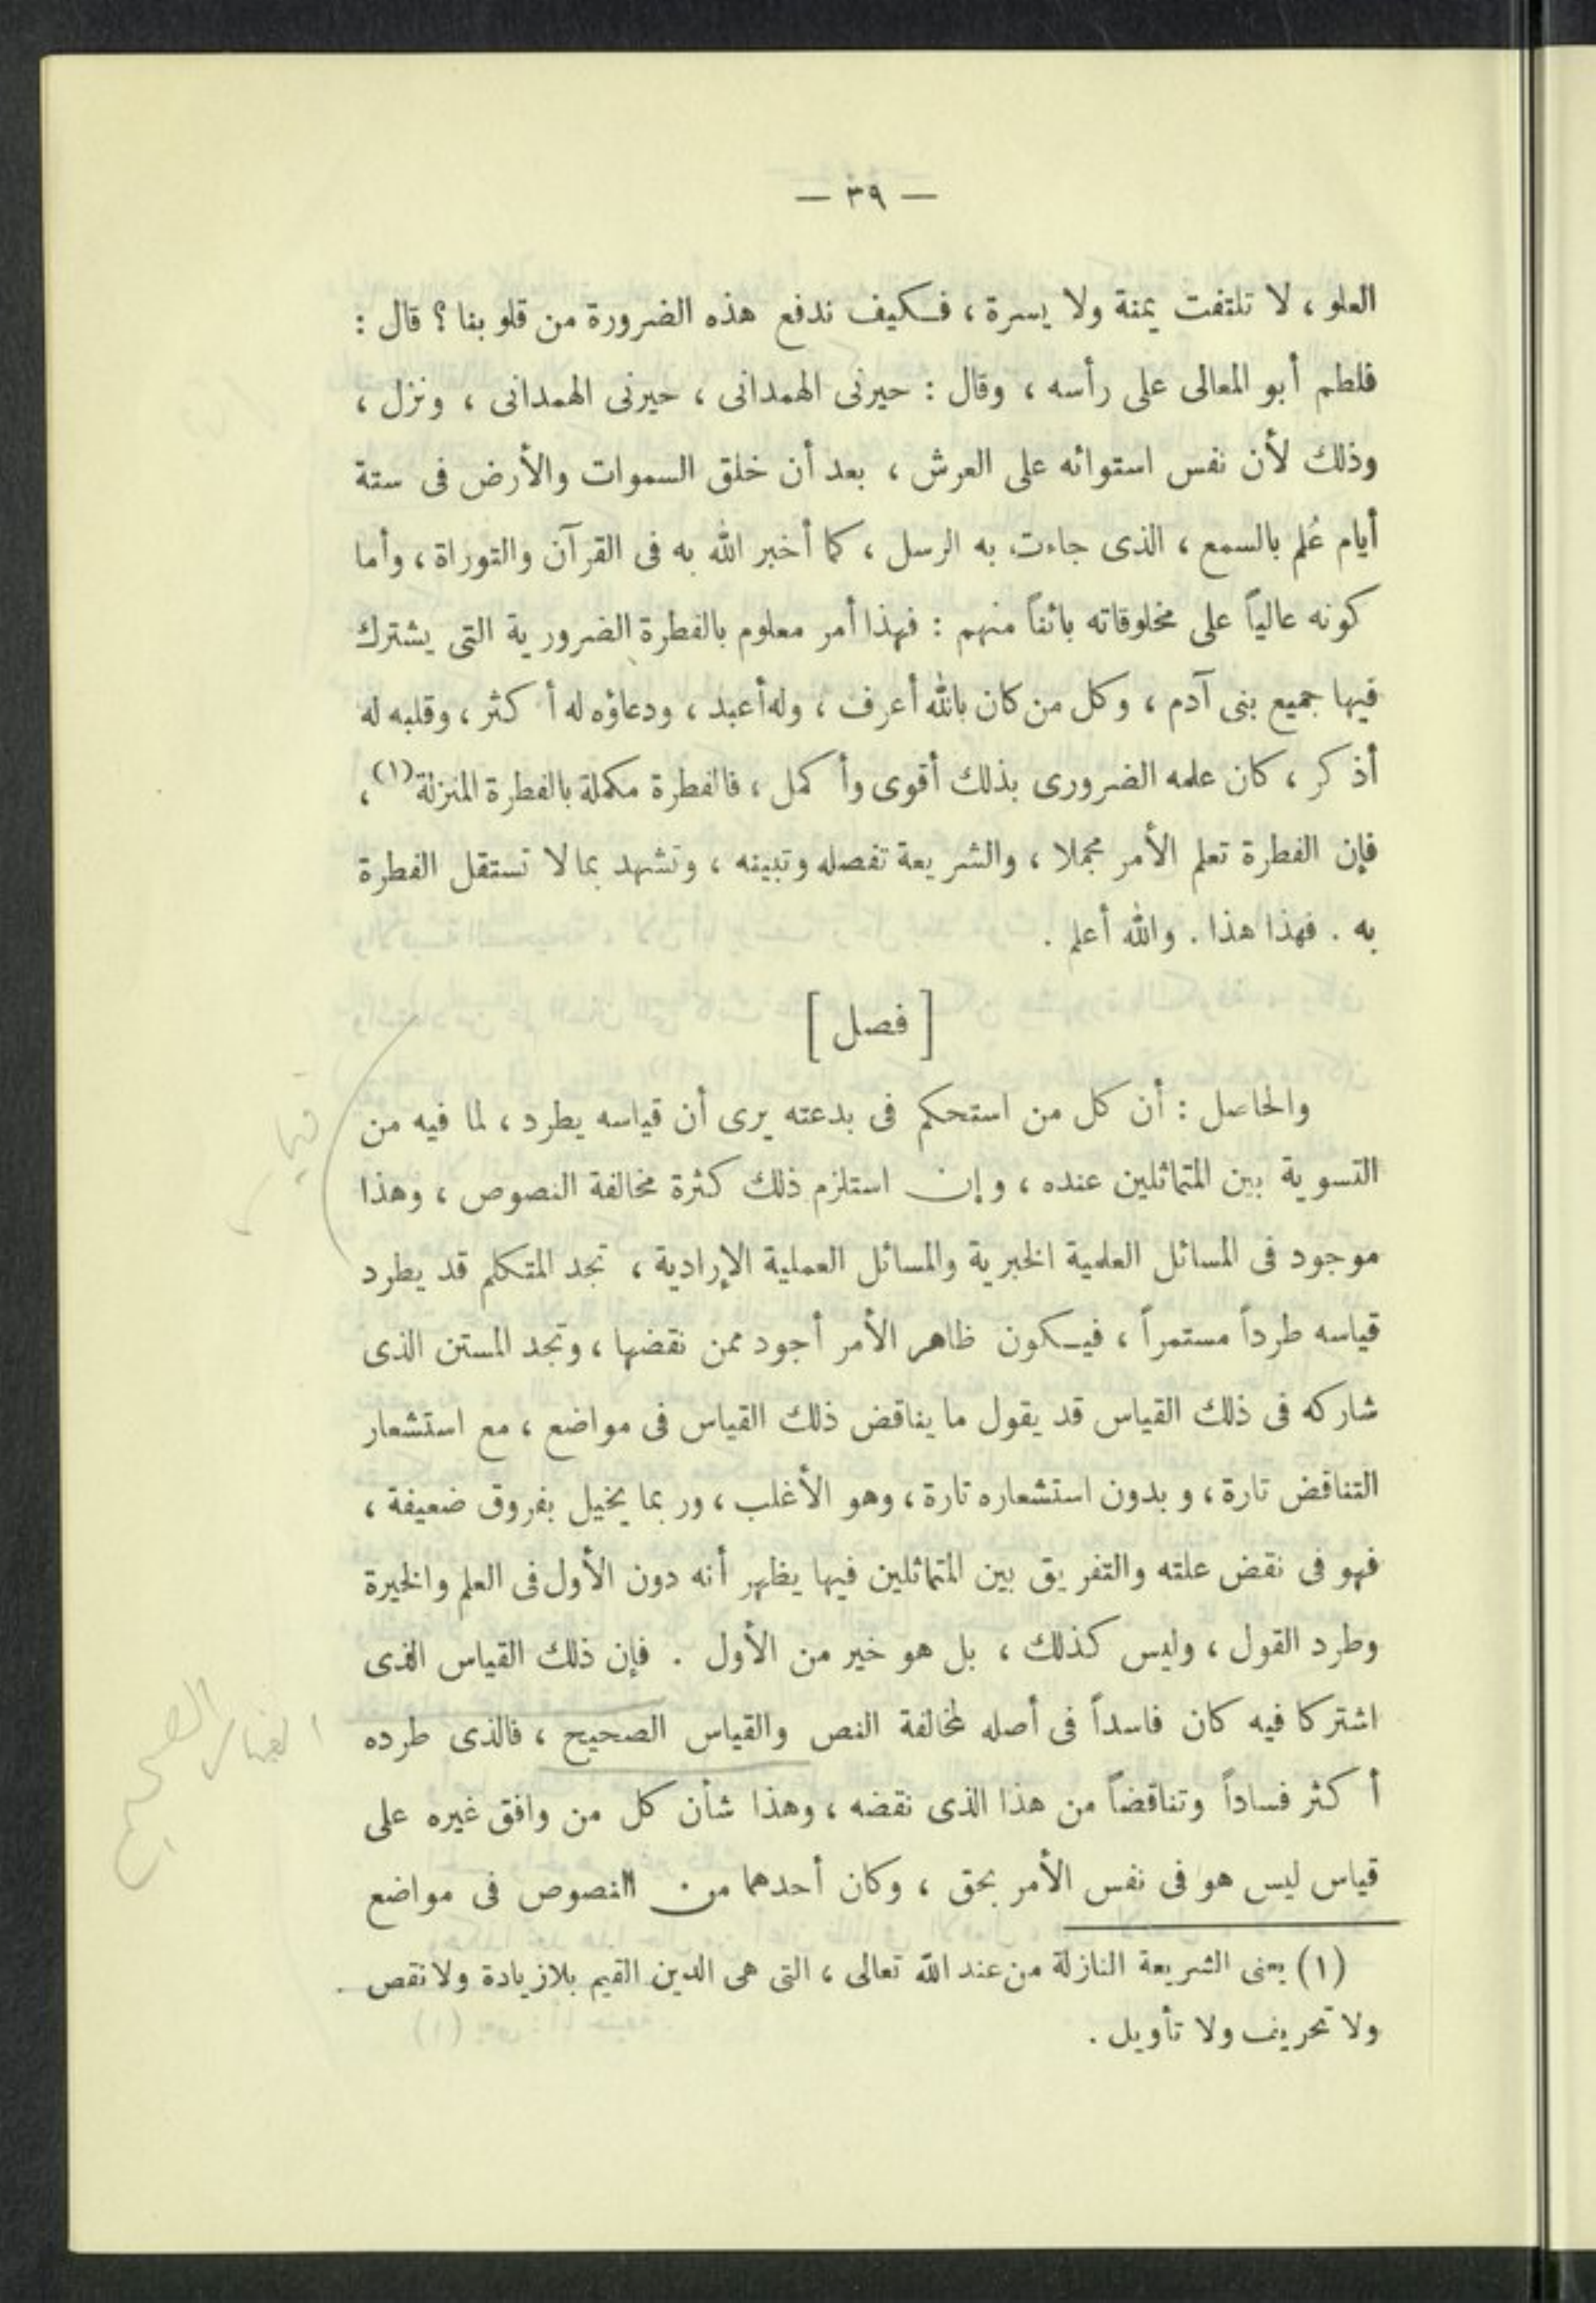 — ٣٩ —
العلو ، لا تلتفت يمنة ولا يسرة ، فكيف ندفع هذه الضرورة من قلوبنا ؟ قال :
فلطم أبو المعالى على رأسه ، وقال : حيرنى الهمدانى ، حيرنى الهمدانى ، ونزل ،
وذلك لأن نفس استوائه على العرش ، بعد أن خلق السموات والأرض فى ستة
أيام عُلم بالسمع ، الذى جاءت به الرسل ، كما أخبر الله به فى القرآن والتوراة ، وأما
كونه عالياً على مخلوقاته بائناً منهم : فهذا أمر معلوم بالفطرة الضرورية التى يشترك
فيها جميع بنى آدم ، وكل من كان بالله أعرف ، وله أعبد ، ودعاؤه له أكثر ، وقلبه له
أذكر ، كان علمه الضرورى بذلك أقوى وأكمل ، فالفطرة مكملة بالفطرة المنزلة (١) ،
فإن الفطرة تعلم الأمر مجملا ، والشريعة تفصله وتبينه ، وتشهد بما لا تستقل الفطرة
به . فهذا هذا . والله أعلم .
[ فصل ]
والحاصل : أن كل من استحكم فى بدعته يرى أن قياسه يطرد ، لما فيه من
التسوية بين المتماثلين عنده ، وإن استلزم ذلك كثرة مخالفة النصوص ، وهذا
موجود فى المسائل العلمية الخبرية والمسائل العملية الإرادية ، تجد المتكلم قد يطرد
قياسه طرداً مستمراً ، فيكون ظاهر الأمر أجود ممن نقضها ، وتجد المستن الذى
شاركه فى ذلك القياس قد يقول ما يناقض ذلك القياس فى مواضع ، مع استشعار
التناقض تارة ، وبدون استشعاره تارة ، وهو الأغلب ، وربما يخيل بفروق ضعيفة ،
فهو فى نقض علته والتفريق بين المتماثلين فيها يظهر أنه دون الأول فى العلم والخبرة
وطرد القول ، وليس كذلك ، بل هو خير من الأول . فإن ذلك القياس الذى
اشتركا فيه كان فاسداً فى أصله لمخالفة النص والقياس الصحيح ، فالذى طرده
أكثر فساداً وتناقضاً من هذا الذى نقضه ، وهذا شأن كل من وافق غيره على
قياس ليس هو فى نفس الأمر بحق ، وكان أحدهما من النصوص فى مواضع
(١) يعنى الشريعة النازلة من عند الله تعالى ، التى هى الدين القيم بلا زيادة ولا نقص
ولا تحريف ولا تأويل .
القياس الصحيح